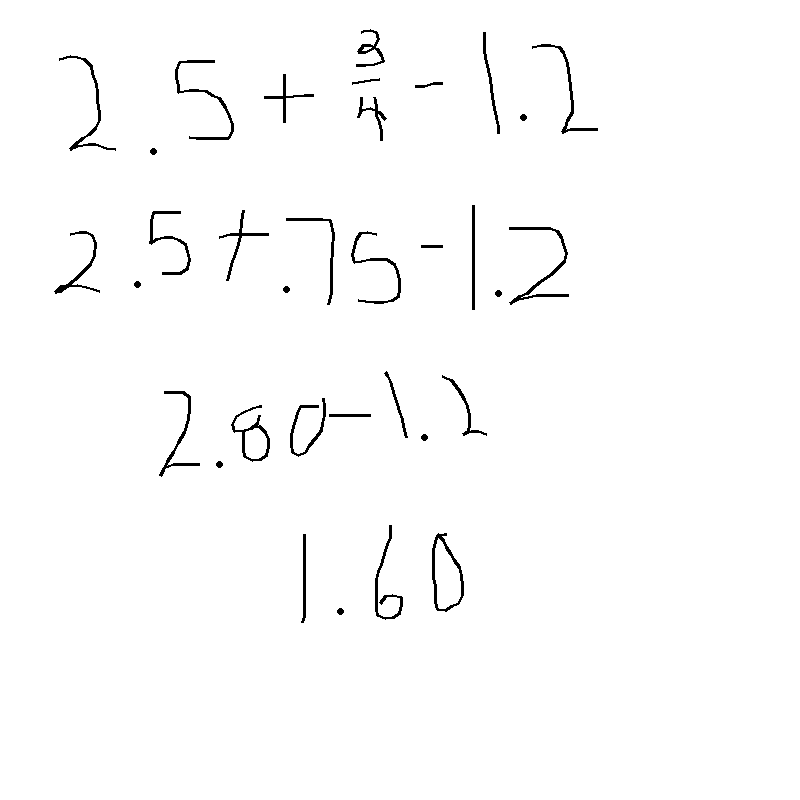 2.5 + 3/4 - 1.2
2.5 + .75 - 1.2
2.80 - 1.2
1.60